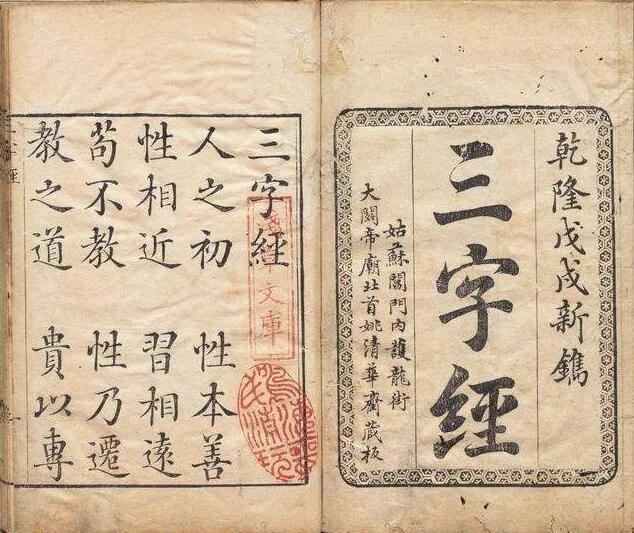 乾隆戊戌新鐫
三字經
姑蘇閶門內護龍街
大關帝廟北首姚清華齋藏板
三字經
人之初 性本善
性相近 習相遠
苟不教 性乃遷
教之道 貴以專
文庫
字經